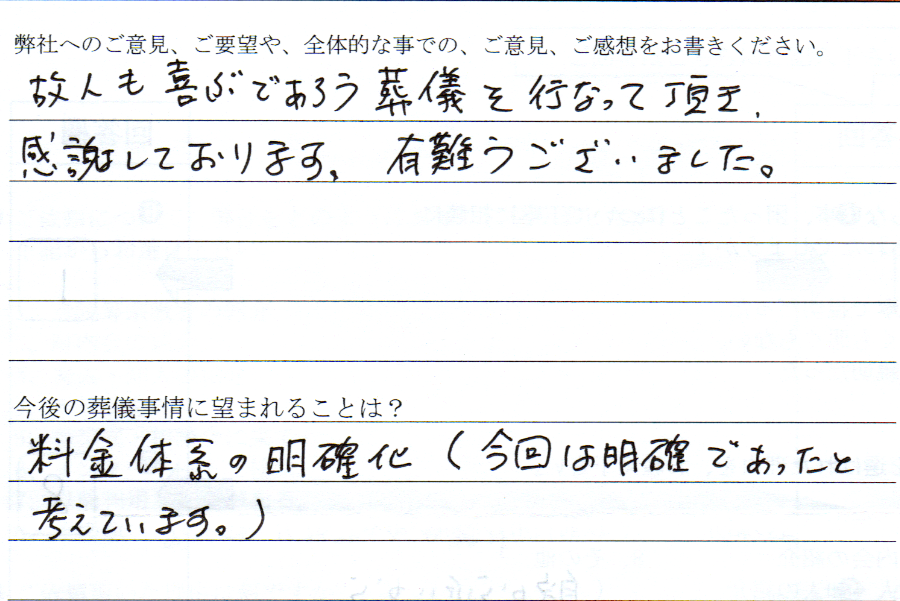 弊社へのご意見、ご要望や、全体的な事での、ご意見、ご感想をお書きください。
故人も喜ぶであろう葬儀を行なって頂き、
感謝しております。有難うございました。
今後の葬儀事情に望まれることは？
料金体系の明確化(今回は明確であったと
考えています。)